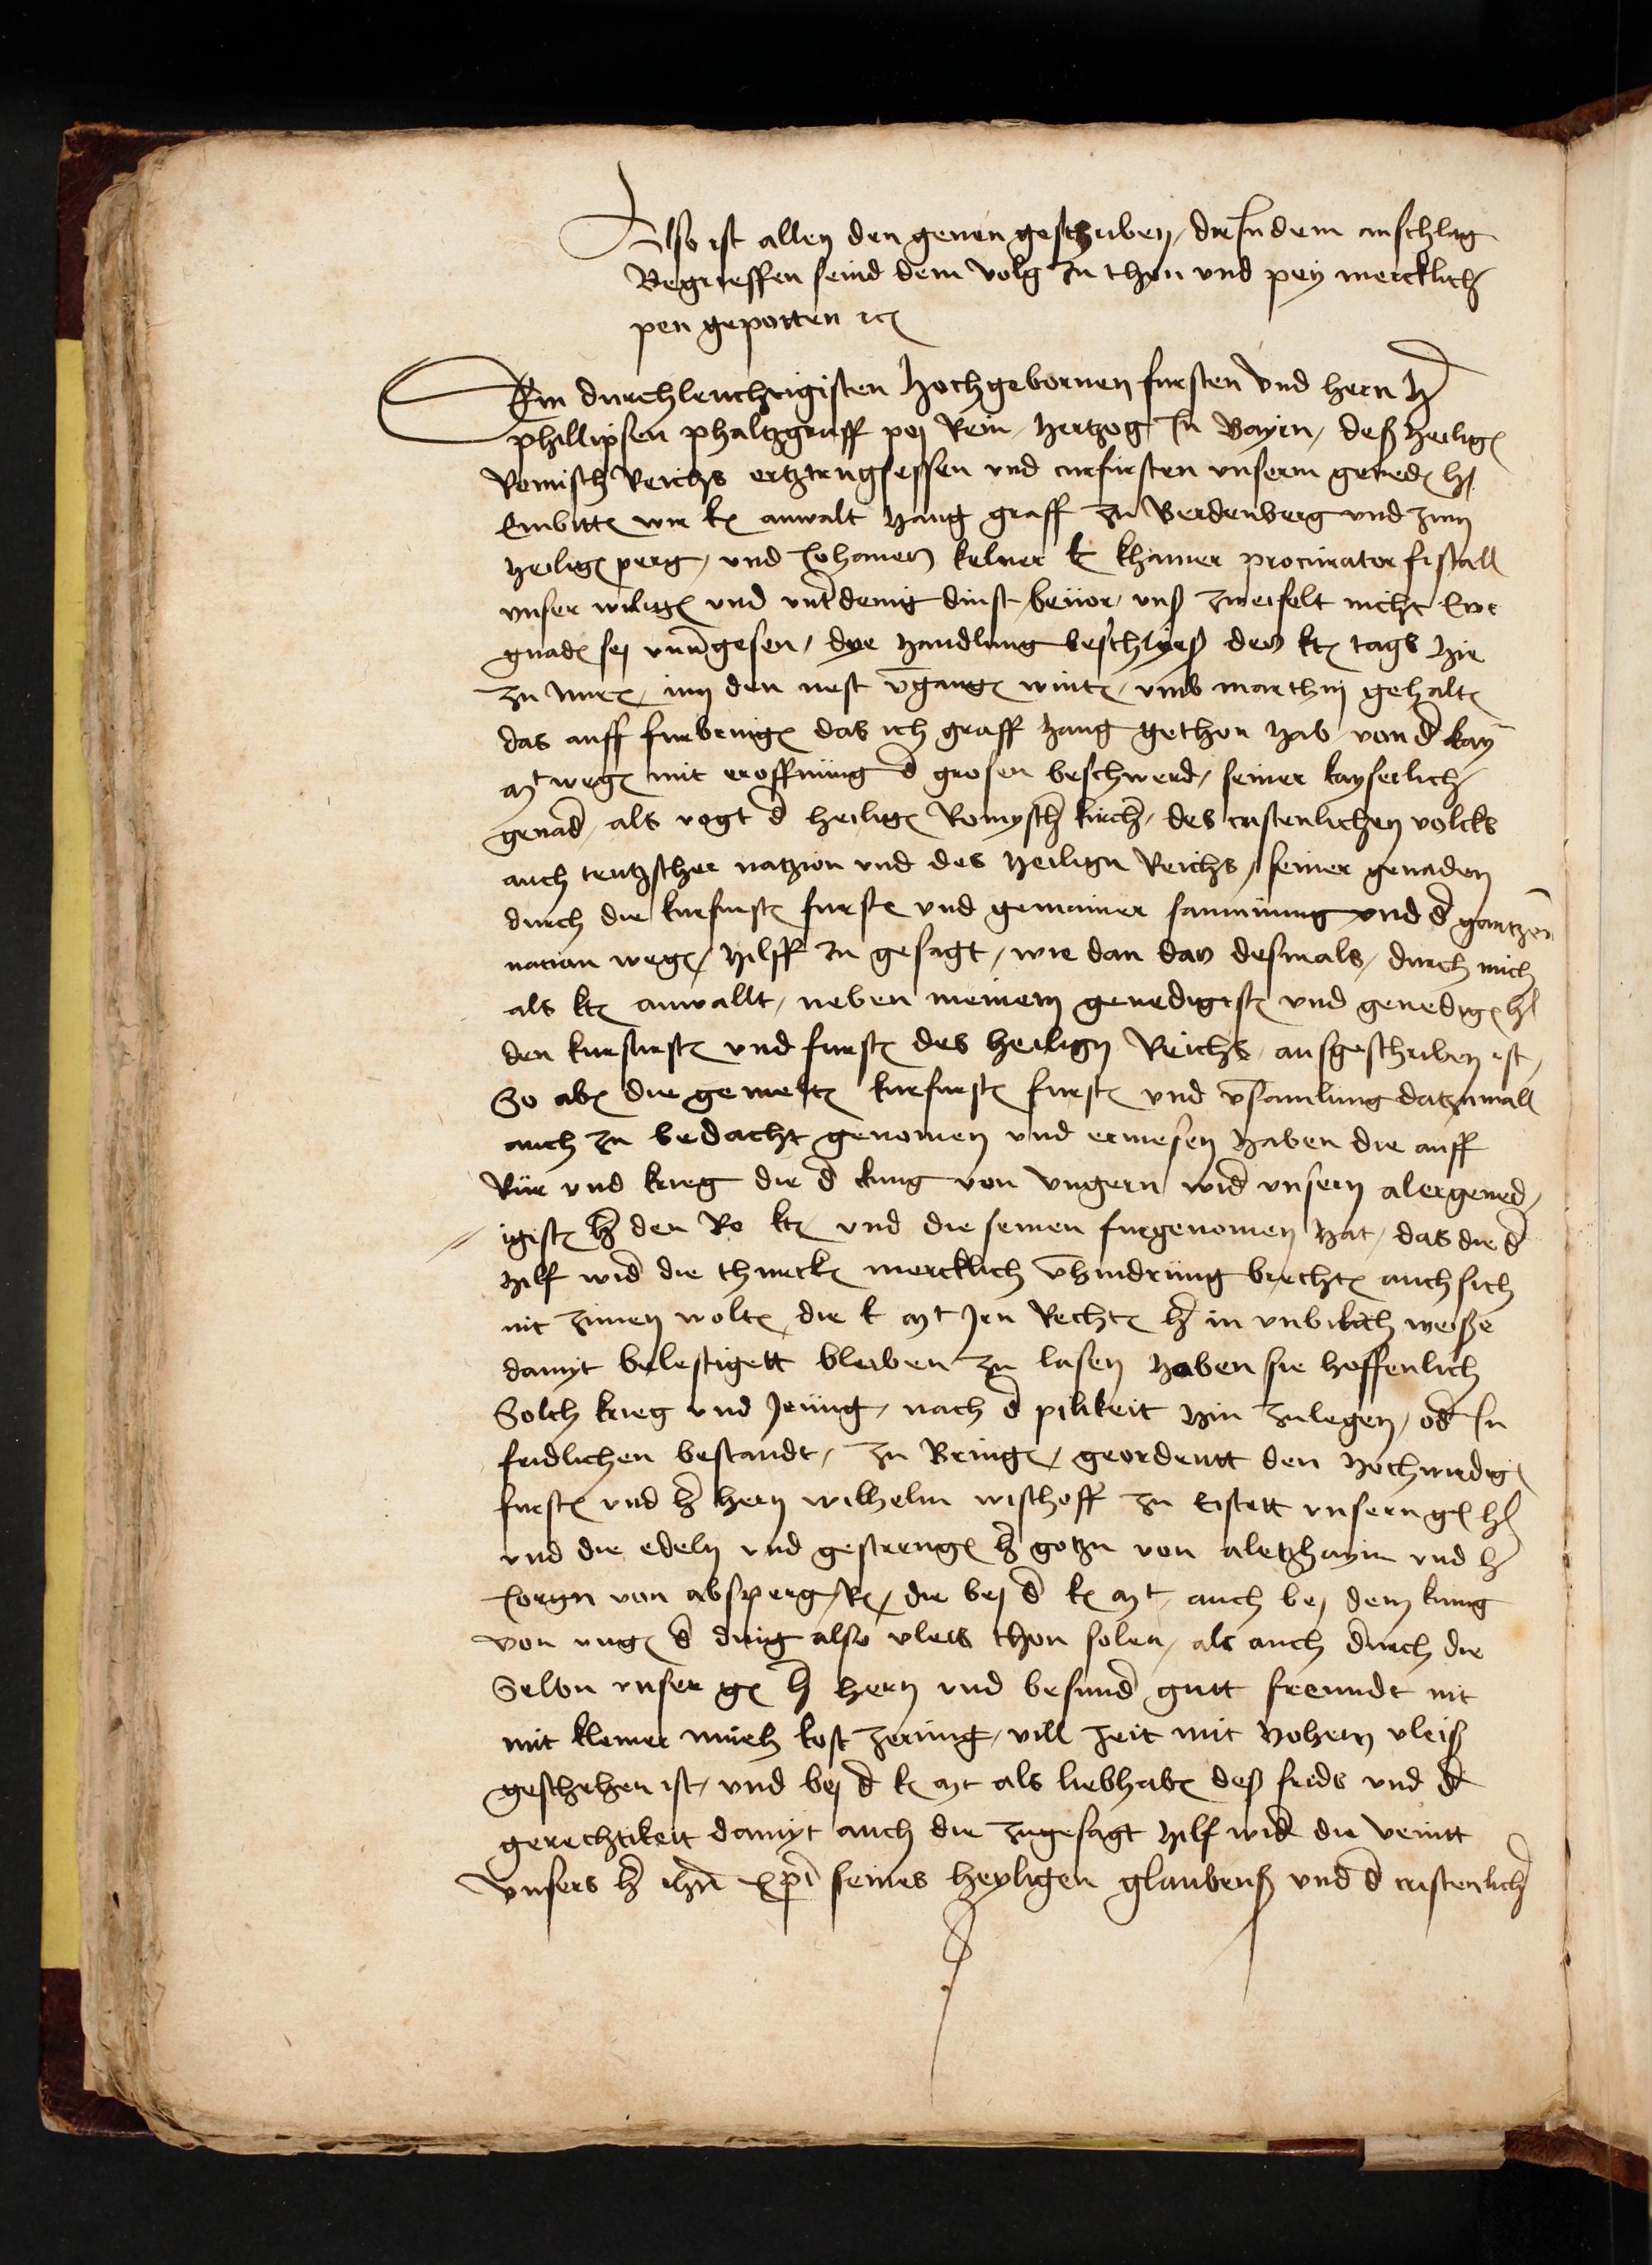 Also ist allen den genen geschriben, die In dem anschlag
Begrieffen seind dem volg zu thon und pey mercklich
pen gepotten ꝛc
Dem durchleuchtigisten Hochgebornen fursten vnd hern H
phillipsen phaltzgraff pej Rein, Hertzog In Bayrn, deß Heilig
Romisch Reichs ertztrugsessen vnd curfursten vnserm gened h
Embitt wir k anwalt Haug graff zu Berdenberg vnd zum
Heilig perg, vnd Johanes kelner k khamer procurator fiscall
vnser willig vnd vnt̄denig dinst beüor, vnß zweifelt nicht Ewr
gnad sej vnūgesen, dye Handlung beschlyeß des kꝛ tags hie
zu Nure, im den nest v̄gang wint, vmb marthinj gehalt
das auff furbring das ich graff Haug gethon hab von d̄ kay
mᵗ weg mit eroffnüng d̄ grosen beschwerd, seiner kayserlich
genad, als vogt d̄ heilig Romysch kirch, des cristenlichen volcks
auch teutzscher natzion vnd des heilign Reichs, seiner genaden
durch die kurfurst furst vnd gemainer samnüng vnd d̄ gantzen
nation weg, Hilff zu gesagt, wie dan das desmals, durch mich
als kꝛ anwallt, neben meinem genedigest vnd genedig h
den kurfurst vnd furst des heilign Reichs, ausgeschriben ist,
So ab die gemelt kurfurst furst vnd v̄samlung datzumall
auch zu bedacht genomen vnd ermesen haben die auff
Rür vnd krieg die d̄ kung von vngern wid̄ vnsern alergened
igist h̄ den Ro kꝛ vnd die seinen furgenomen hat, das die d̄
Hilf wid̄ die thurck mercklich v̄hindrüng brecht auch sich
nit zimen wolt, die k mᵗ Jen Recht h̄ in vnbillich weiße
damyt belestigett bleiben zu lasen haben sie hoffenlich
Solch krieg vnd Jrüng, nach d̄ pilikeit hin zulegen, od̄ In
fridlichen bestandt, zu Bring, geordentt den Hochwirdig
furst vnd h̄ hern wilhelm wischoff zu Eistett vnsern g h
vnd die edeln vnd gestreng h̄ gotzn von aletzhaym vnd h̄
Jorgn von absperg R, die bej d̄ k mᵗ, auch bej dem kung
von vng d̄ ding also vleis thon solen, als auch durch die
Selbn vnser g h̄ hern vnd besund̄ gutt freundt nit
mit kleiner müeh kost zerung, vill zeit mit hohem vleiß
geschehen ist, vnd bej d̄ k mᵗ als liebhab deß frids vnd d̄
gerechtikeit damyt auch die zugesagt Hilf wid̄ die veintt
vnsers h̄ ihū xpī seines heyligen glaubenß vnd d̄ cristenlich